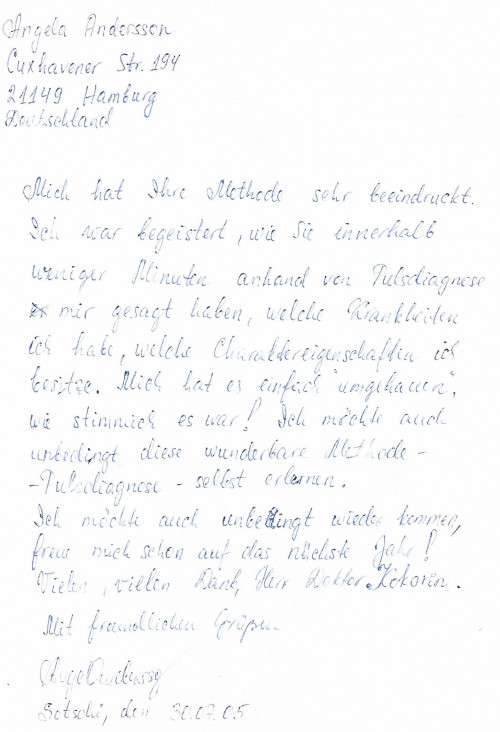 Angela Andersson
Cuxhavener Str. 194
21149 Hamburg
Deutschland
Mich hat Ihre Methode sehr beeindruckt.
Ich war begeistert, wie Sie innerhalb
weniger Minuten anhand von Pulsdiagnose
mir gesagt haben, welche Krankheiten
ich habe, welche Charaktereigenschaften ich
besitze. Mich hat es einfach "umgehauen",
wie stimmich es war! Ich möchte auch
unbedingt diese wunderbare Methode -
- Pulsdiagnose - selbst erlernen.
Ich möchte auch unbedingt wieder kommen,
freue mich schon auf das nächste Jahr!
Vielen, vielen Dank, Herr Doktor Kokorin.
Mit freundlichen Grüßen.
Sotschi, den 30.07.05